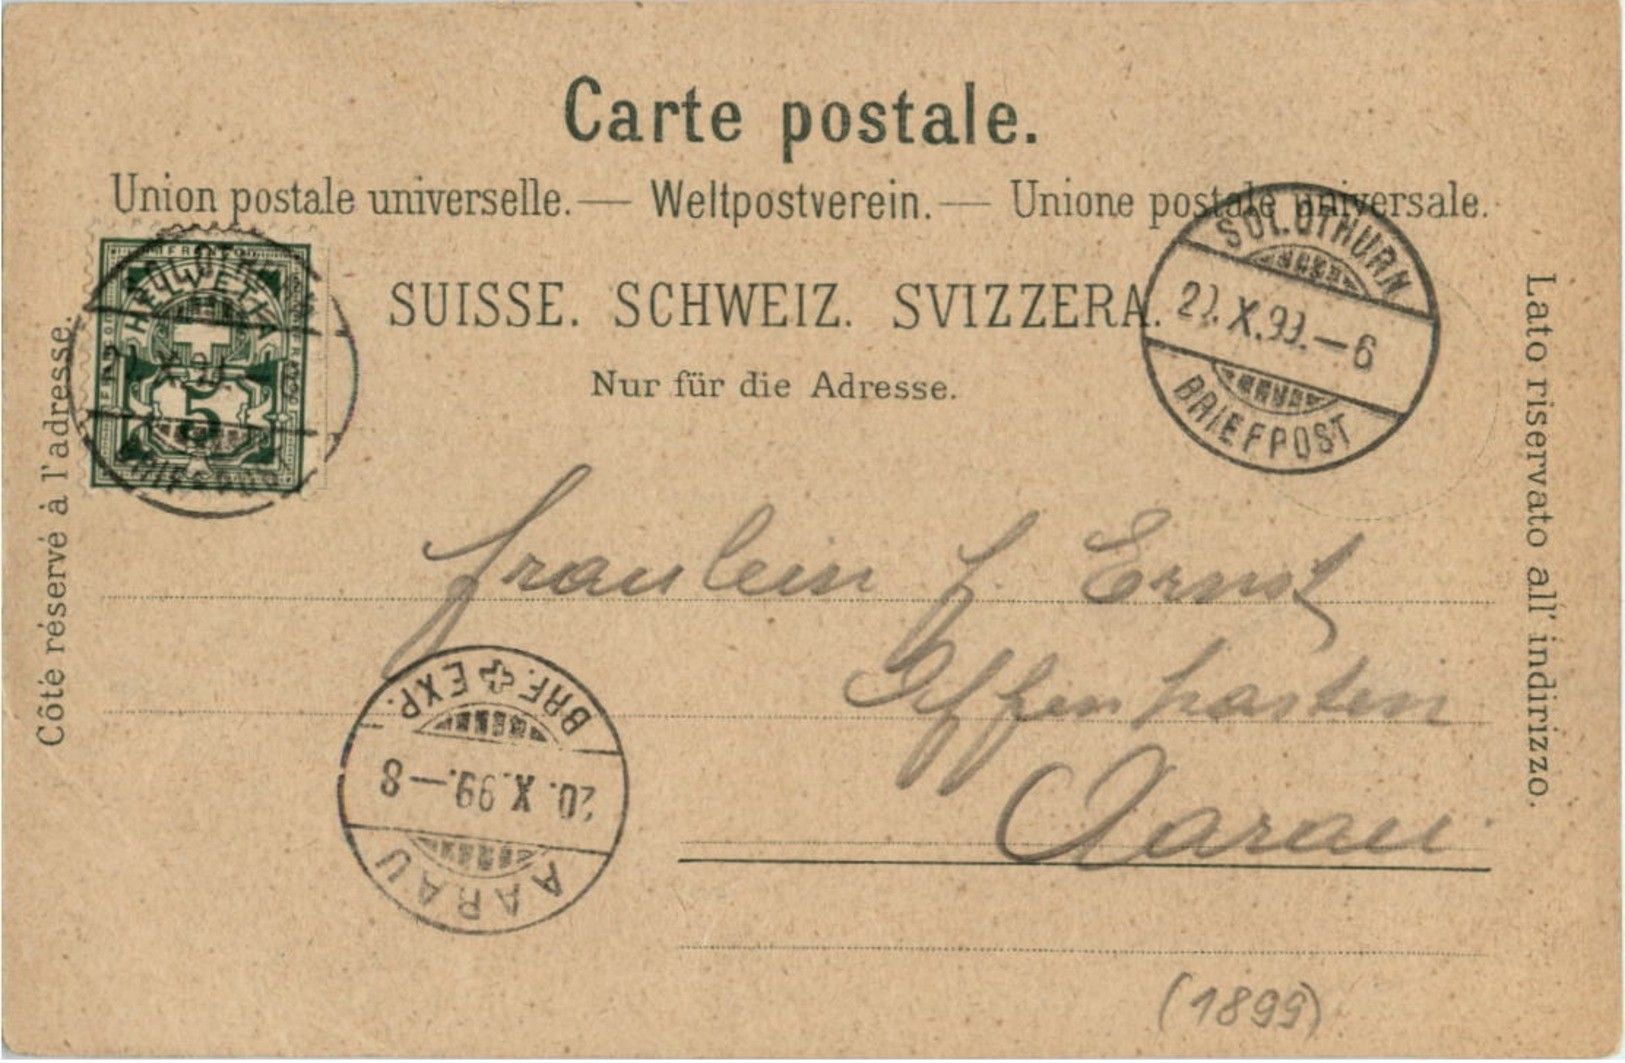 Carte postale.
Union postale universelle. — Weltpostverein. — Unione postale universale.
SUISSE. SCHWEIZ. SVIZZERA.
Nur für die Adresse.
Côté réservé à l'adresse.
Lato riservato all' indirizzo.
FRANCO
HELVETIA
5
SOLOTHURN
X.99.—6
BRIEFPOST
Fräulein F. Ernst
Aarau
BRF. EXP.
20. X. 99.—8
AARAU
(1899)